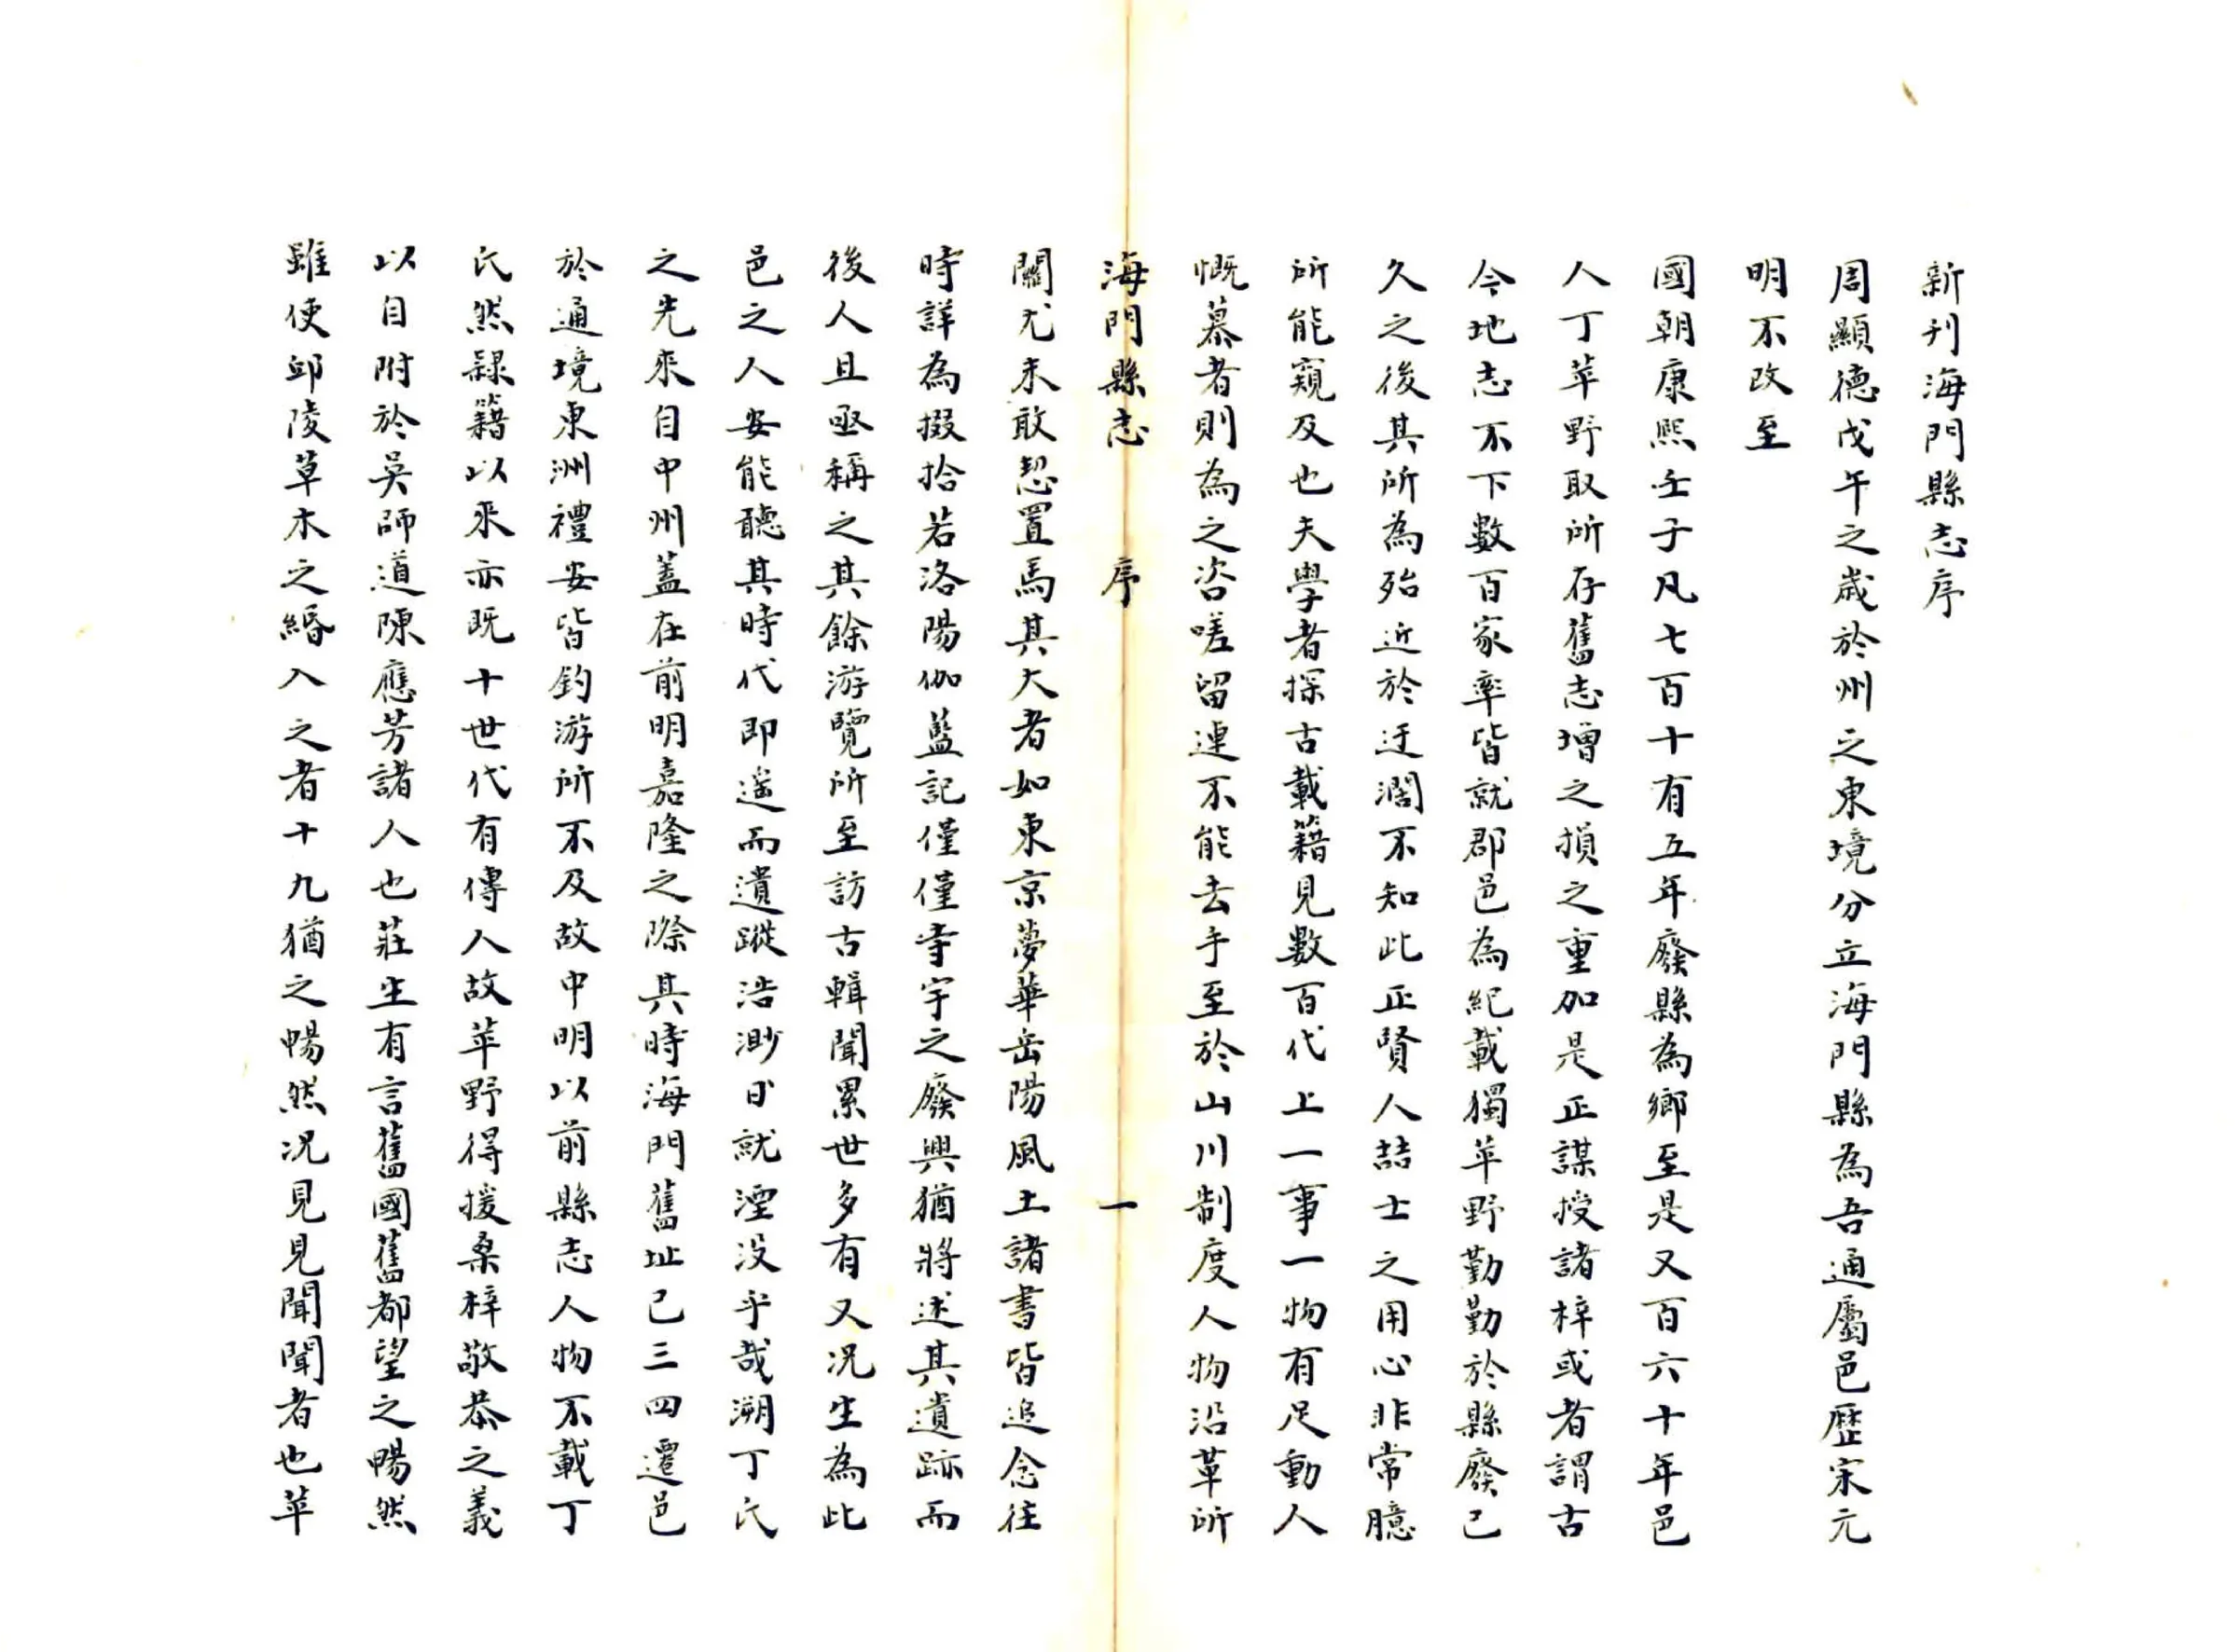 新刊海門縣志序
周顯德戊午之歲於州之東境分立海門縣為吾通屬邑歷宋元
明不改至
國朝康熙壬子凡七百十有五年廢縣為鄉至是又百六十年邑
人丁苹野取所存舊志增之損之重加是正謀授諸梓或者謂古
今地志不下數百家率皆就郡邑為紀載獨苹野勤勤於縣廢已
久之後其所為殆近於迂濶不知此正賢人喆士之用心非常臆
所能窺及也夫學者探古載籍見數百代上一事一物有足動人
慨慕者則為之咨嗟留連不能去手至於山川制度人物沿革所
海門縣志 序 一
關尤未敢恝置焉其大者如東京夢華岳陽風土諸書皆追念往
時詳為掇拾若洛陽伽藍記僅僅寺宇之廢興猶將述其遺跡而
後人且亟稱之其餘游覽所至訪古輯聞累世多有又況生為此
邑之人安能聽其時代即遥而遺蹤浩渺日就湮没乎哉溯丁氏
之先來自中州蓋在前明嘉隆之際其時海門舊址已三四遷邑
於通境東洲禮安皆釣游所不及故中明以前縣志人物不載丁
氏然隸籍以來亦既十世代有傳人故苹野得援桑梓敬恭之義
以自附於吳師道陳應芳諸人也莊生有言舊國舊都望之暢然
雖使邱陵草木之緡入之者十九猶之暢然況見見聞聞者也苹